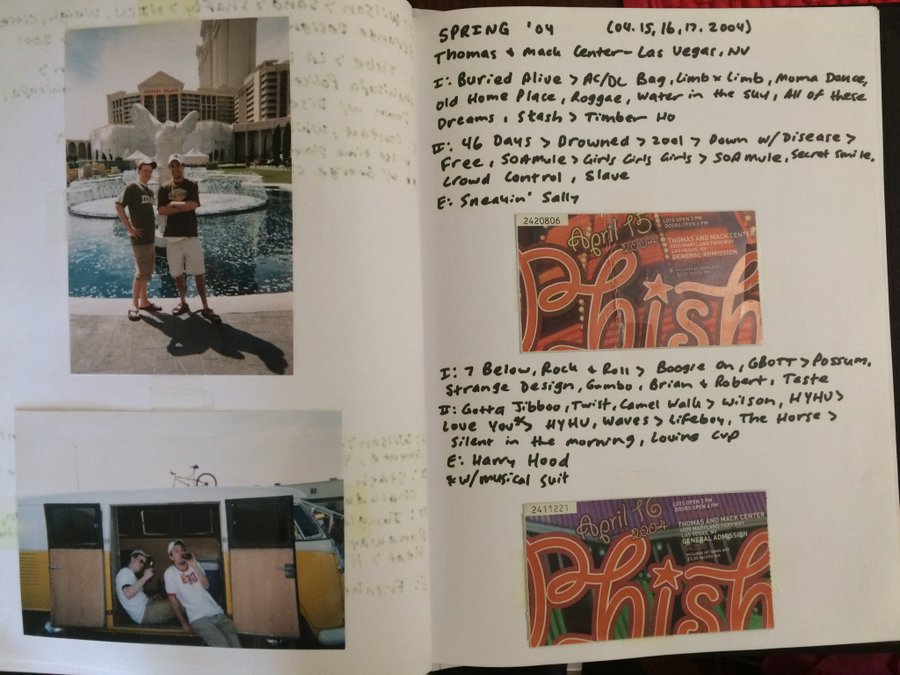 SPRING '04 (04.15,16,17.2004)
Thomas & Mack Center - Las Vegas, NV
I: Buried Alive > AC/DC Bag, Limb x Limb, Moma Dance,
Old Home Place, Roggae, Water in the Sky, All of these
Dreams, Stash > Timber Ho
II: 46 Days > Drowned > 2001 > Down w/ Disease >
Free, SOAMule > Girls Girls Girls > SOAMule, Secret Smile,
Crowd Control, Slave
E: Sneakin' Sally
2420806
April 15
2004
LOTS OPEN 3 PM
DOORS OPEN 6 PM
THOMAS AND MACK CENTER
4505 MARYLAND PARKWAY
LAS VEGAS, NV
GENERAL ADMISSION
Phish
I: 7 Below, Rock & Roll > Boogie On, GBOTT > Possum,
Strange Design, Gumbo, Brian & Robert, Taste
II: Gotta Jibboo, Twist, Camel Walk > Wilson, HYHU >
Love You* > HYHU, Waves > Lifeboy, The Horse >
Silent in the morning, Loving Cup
E: Harry Hood
* w/musical suit
2411221
April 16
2004
LOTS OPEN 3 PM
DOORS OPEN 6 PM
THOMAS AND MACK CENTER
4505 MARYLAND PARKWAY
LAS VEGAS, NV
GENERAL ADMISSION
Phish
CAESARS PALACE